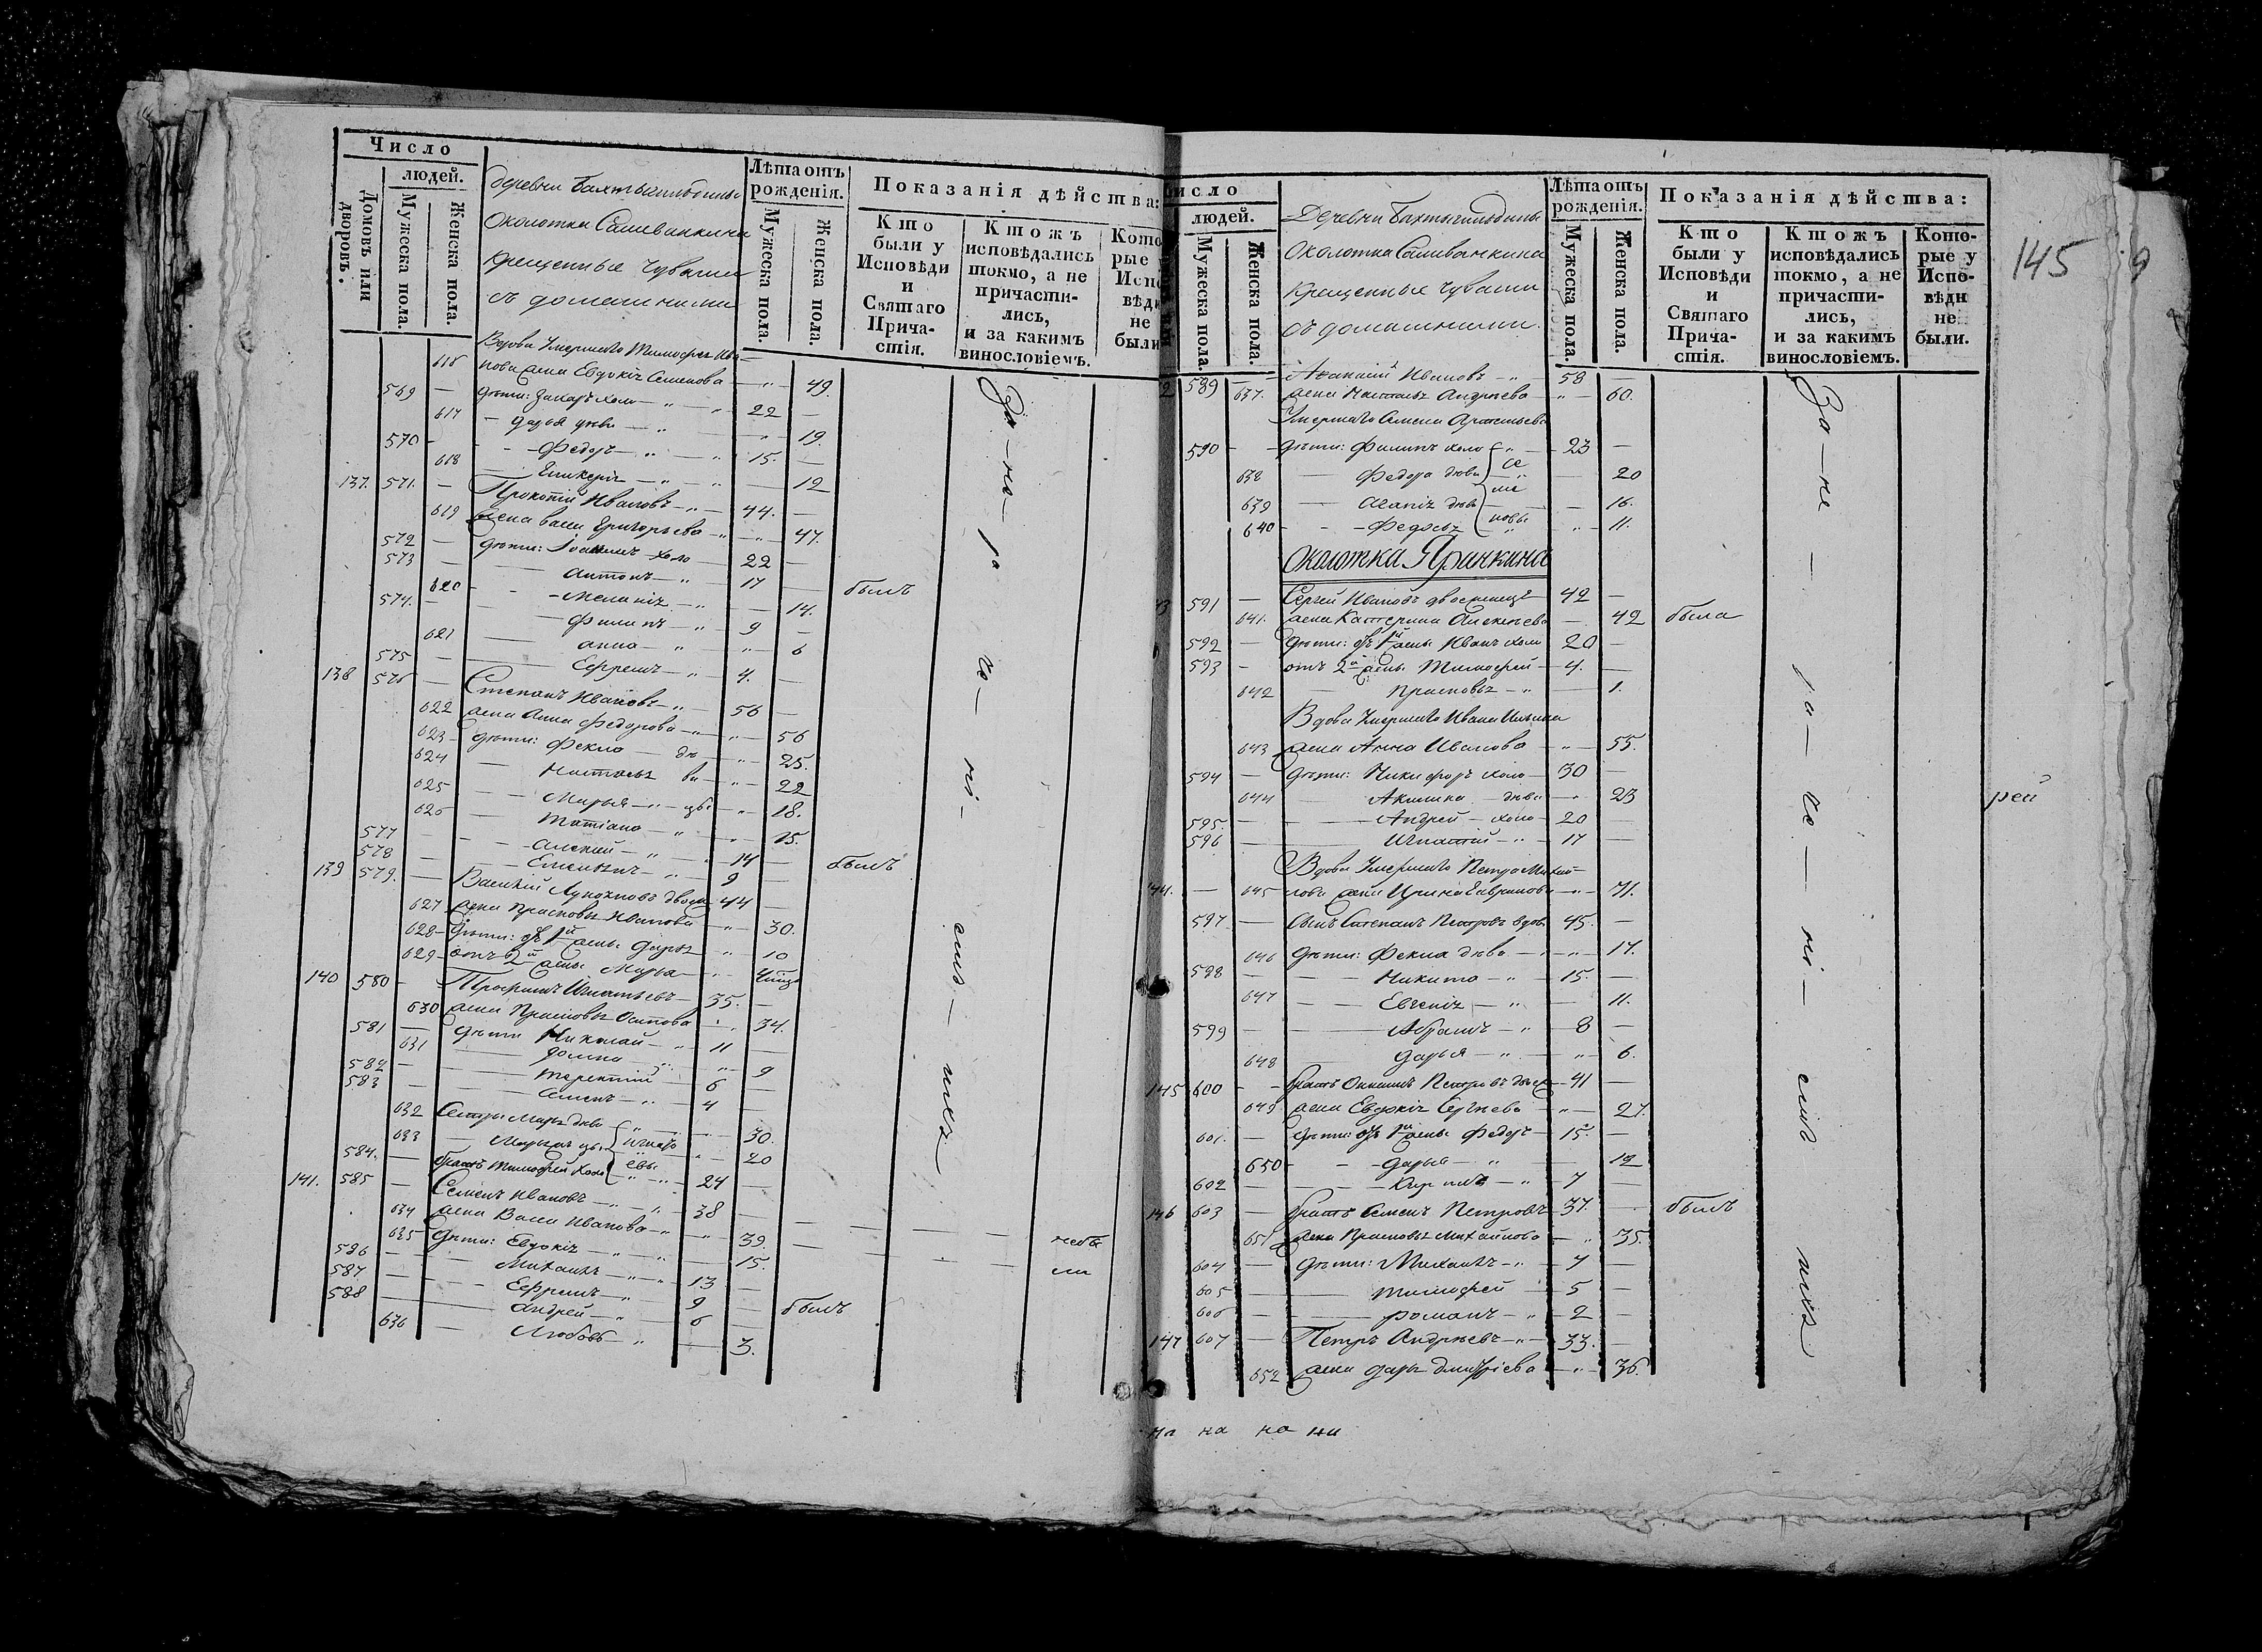 Число
людей.
Домовъ или дворовъ.
Мужеска пола.
Женска пола.
деревни Бахтыгильдины
Околотка Саливанкина
крещенные чуваши
съ домашними
Лѣта отъ рожденія.
Мужеска пола.
Женска пола.
Показанія дѣйства:
Кто были у Исповѣди и Святаго Причастія.
Кто жъ исповѣдались токмо, а не причастились, и за какимъ винословіемъ.
Вдова Умершаго Тимофея Ива-
616 нова жена Евдокія Семенова — 49.
569 дѣти: Захаръ холо 22
617 Дарья дѣв 19.
570 Федоръ 15.
618 12
137. 571. Прокопій Ивановъ 44.
619 жена Васса Григорьева 47.
572 дѣти: холо 22
573 Антонъ 17 былъ
620 Меланія 14.
574. Филипъ 9
621 Анна 6
575 Ефремъ 4.
138 576 Степанъ Ивановъ 56
622 жена Анна Федорова 56
623 дѣти: Фекла дѣ 25.
624 Настасья ви 22
625 Марья цы 18.
626 Татіана 15.
577 Алексѣй 14 былъ
578 9
139 579. Василій двоеж 44
627 жена Прасковья Иванова 30.
628 дѣти: отъ 1й жены Дарья 10
629 отъ 2й жены Марья
140 580 Трофимъ Игнатьевъ 35.
630 жена Прасковья Осипова 34.
581 дѣти Николай 11
631 Домна 9
582 Терентій 6
583 Семенъ 4
632 Сестры Марья дѣв 30.
633 20
584. братъ Тимофей холо 24
141. 585 Семенъ Ивановъ 38
634 жена Васса Иванова 39.
635 дѣти: Евдокія 15.
небы
ли
586 Михаилъ 13
587 Ефремъ 9 былъ
588 Андрей 6
636 Любовь 3.
людей.
Мужеска пола.
Женска пола.
Деревни Бахтыгильдины
Околотка Саливанкина
крещенные чуваши
съ домашними.
Лѣта отъ рожденія.
Мужеска пола.
Женска пола.
Показанія дѣйства:
Кто были у Исповѣди и Святаго Причастія.
Кто жъ исповѣдались токмо, а не причастились, и за какимъ винословіемъ.
Которые у Исповѣди не были.
145
589 Аѳанасій Ивановъ 58
637. жена Настасья Андреева 60.
Умершаго Семена Арсеньева
590 дѣти: Филипъ холо 23
638 Федора дѣви 20
639 Агапія дѣв 16.
640 Федосья 11.
околотка Яранкина
591 Сергей Ивановъ двоеженецъ 42
641. жена Катерина Алексѣева 42 была
592 дѣти: отъ 1й жены Иванъ холо 20
593 отъ 2й жены Тимофей 4.
642 Прасковья 1.
Вдова Умершаго Ивана Ильина
643 жена Анна Иванова 55.
594 дѣти: Никифоръ холо 30
644 Акилина дѣви 23
рей
595. Андрей холо 20
596 Игнатій 17
Вдова Умершаго Петра Михай-
645 лова жена Ирина Гаврилова 71.
597 сынъ Степанъ Петровъ вдов 45.
646 дѣти: Фекла дѣво 17.
598 Никита 15.
647 Евгенія 11.
599 Абрамъ 8
648 Дарья 6.
145 600 братъ Петровъ двоеж 41
649 жена Евдокія Сергѣева 27.
601. дѣти: отъ 1й жены Федоръ 15.
650 Дарья 12
602 7
146 603 братъ Семенъ Петровъ 37. былъ
651 жена Прасковья Михайлова 35.
604 дѣти: Михаилъ 7
605 Тимофей 5
606 Романъ 2
147 607 Петръ Андреевъ 33.
652 жена Дарья Дмитріева 36.
на на на ни